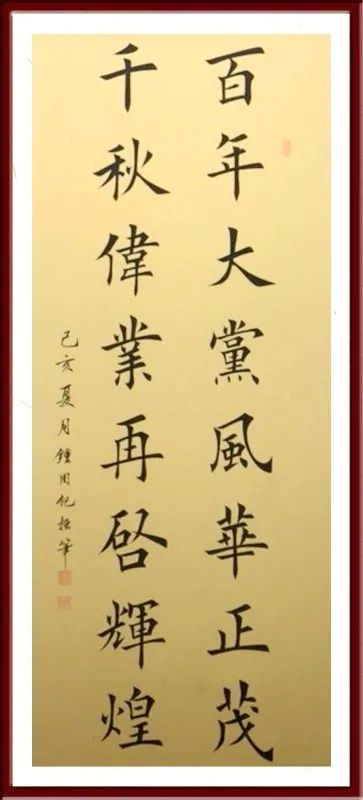 百年大黨風華正茂
千秋偉業再啓輝煌
己亥夏月鍾用紀拯筆